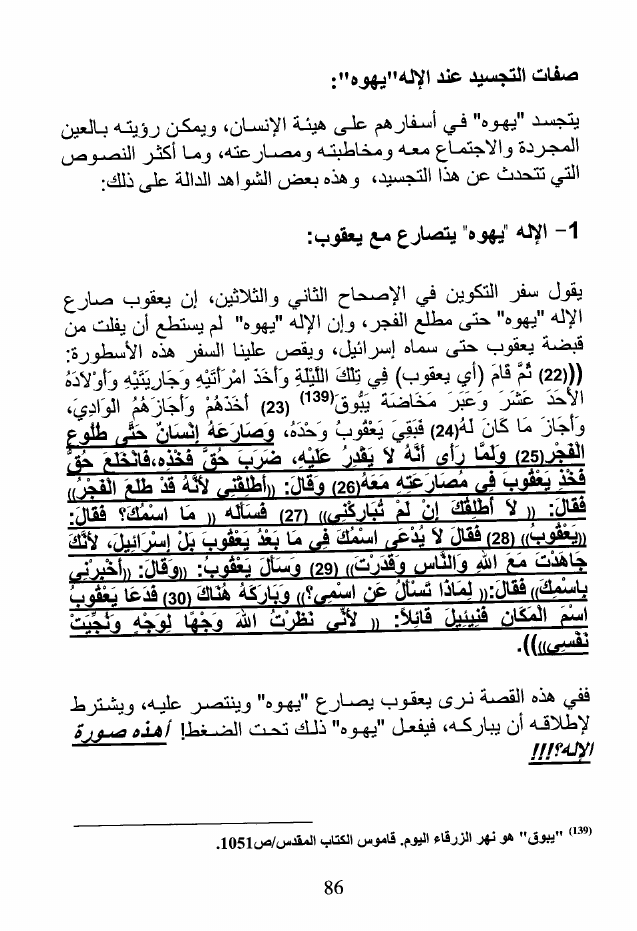 صفات التجسيد عند الإله"يهوه":
يتجسد "يهوه" في أسفارهم على هيئة الإنسان، ويمكن رؤيته بالعين
المجردة والاجتماع معه ومخاطبته ومصارعته، وما أكثر النصوص
التي تتحدث عن هذا التجسيد، وهذه بعض الشواهد الدالة على ذلك:
1- الإله "يهوه" يتصارع مع يعقوب:
يقول سفر التكوين في الإصحاح الثاني والثلاثين، إن يعقوب صارع
الإله "يهوه" حتى مطلع الفجر، وإن الإله "يهوه" لم يستطع أن يفلت من
قبضة يعقوب حتى سماه إسرائيل، ويقص علينا السفر هذه الأسطورة:
(((22) ثُمَّ قَامَ (أي يعقوب) فِي تِلْكَ اللَّيْلَةِ وَأَخَذَ امْرَأَتَيْهِ وَجَارِيَتَيْهِ وَأَوْلاَدَهُ
الأَحَدَ عَشَرَ وَعَبَرَ مَخَاضَةَ يَبُّوقَ(139) (23) أَخَذَهُمْ وَأَجَازَهُمُ الْوَادِيَ،
وَأَجَازَ مَا كَانَ لَهُ(24) فَبَقِيَ يَعْقُوبُ وَحْدَهُ، وَصَارَعَهُ إِنْسَانٌ حَتَّى طُلُوعِ
الْفَجْرِ(25) وَلَمَّا رَأَى أَنَّهُ لاَ يَقْدِرُ عَلَيْهِ، ضَرَبَ حُقَّ فَخْذِهِ،فَانْخَلَعَ حُقُّ
فَخْذِ يَعْقُوبَ فِي مُصَارَعَتِهِ مَعَهُ(26) وَقَالَ: ((أَطْلِقْنِي لأَنَّهُ قَدْ طَلَعَ الْفَجْرُ))
فَقَالَ: (( لاَ أُطْلِقُكَ إِنْ لَمْ تُبَارِكْنِي)) (27) فَسَأَلَه (( مَا اسْمُكَ؟ فَقَالَ:
((يَعْقُوبُ)) (28) فَقَالَ لاَ يُدْعَى اسْمُكَ فِي مَا بَعْدُ يَعْقُوبَ بَلْ إِسْرَائِيلَ، لأَنَّكَ
جَاهَدْتَ مَعَ اللهِ وَالنَّاسِ وَقَدَرْتَ)) (29) وَسَأَلَ يَعْقُوبُ: ((وَقَالَ: ((أَخْبِرْنِي
بِاسْمِكَ)) فَقَالَ:(( لِمَاذَا تَسْأَلُ عَنِ اسْمِي؟)) وَبَارَكَهُ هُنَاكَ (30) فَدَعَا يَعْقُوبُ
اسْمَ الْمَكَانِ فَنِيئِيلَ قَائِلاً: (( لأَنِّي نَظَرْتُ اللهَ وَجْهًا لِوَجْهٍ وَنُجِّيَتْ
نَفْسِي)))).
ففي هذه القصة نرى يعقوب يصارع "يهوه" وينتصر عليه، ويشترط
لإطلاقه أن يباركه، فيفعل "يهوه" ذلك تحت الضغط! أهذه صورة
الإله؟!!!
(139) "يبوق" هو نهر الزرقاء اليوم. قاموس الكتاب المقدس/ص1051.
86